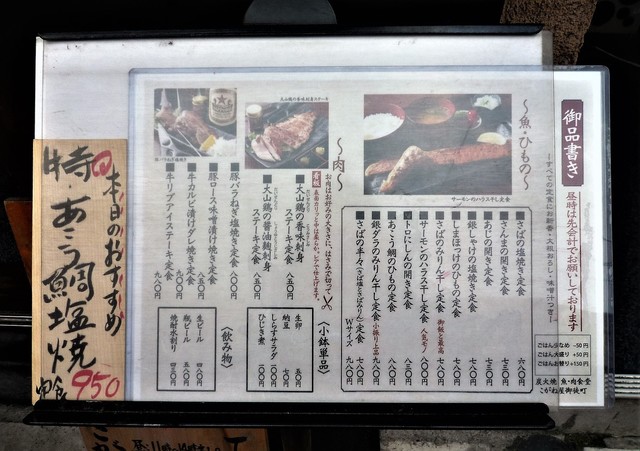 御品書き
昼時は先会計でお願いしております
ーすべての定食にお新香・大根おろし・味噌汁つきー
ごはん少なめ −50円
ごはん大盛り +50円
炭火焼 魚・肉食堂
こがね屋御徒町
〜魚・ひもの〜
サーモンのハラス干し定食
さばの塩焼き定食 六八〇
さんまの開き定食 七三〇
あじの開き定食
銀しゃけの塩焼き定食 七八〇
しまほっけのひもの定食
さばのみりん干し定食
サーモンのハラス干し定食 人気モノ
トロにしんの開き定食
あこう鯛のひもの定食
銀ダラのみりん干し定食
さばの半々(さば塩とさばみりん)定食
Wサイズ
〜肉〜
お肉はお好みの大きさに、はさみで切って
大山鶏の香味刺身
ステーキ定食 八五〇
大山鶏の醤油麹刺身
ステーキ定食 八五〇
豚バラねぎ塩焼き定食 八〇〇
豚ロース味噌漬け焼き定食 八五〇
牛カルビ漬けダレ焼き定食 九〇〇
牛リブアイステーキ定食 九八〇
〈小鉢単品〉
生卵 五〇
納豆 七〇
しらすサラダ 一〇〇
ひじき煮 一〇〇
〈飲み物〉
生ビール 四八〇
瓶ビール 五八〇
焼酎水割り 四三〇
本日のおすすめ
特・あこう鯛塩焼
定食 950